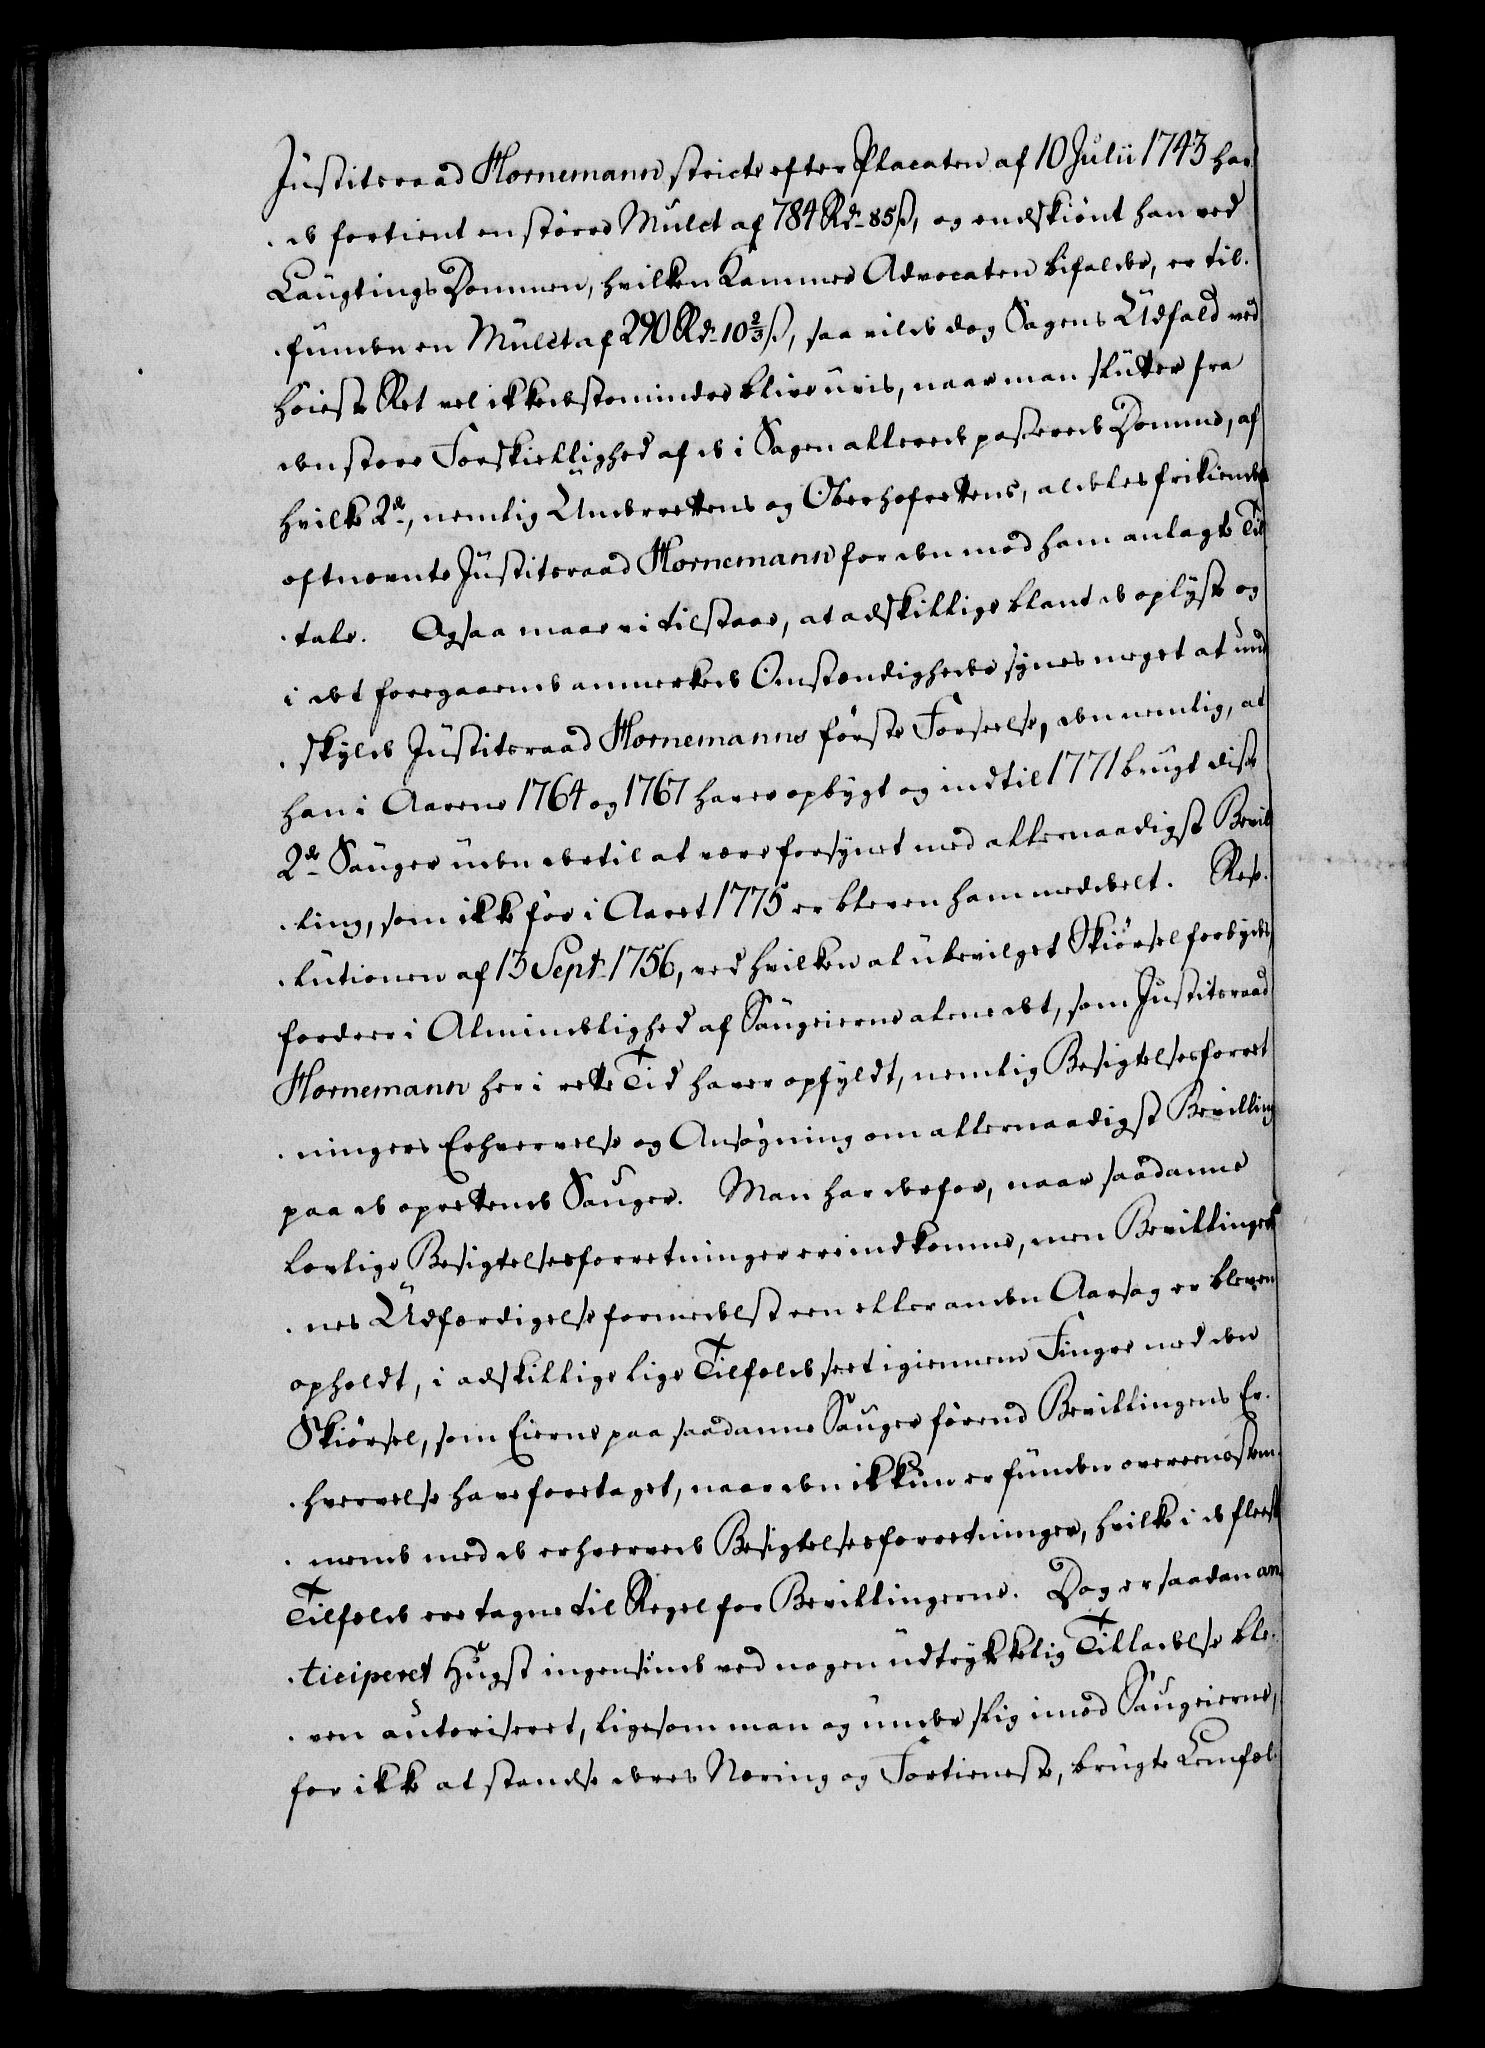 Justitsraad Hornemann stricte efter Placaten af 10 Julii 1743 hav
de fortient en større Mulct af 784 Rd. 85 ß, og endskiønt han ved
Laugtings Dommen, hvilken Kammer Advocaten bifalder, er til-
funden en Mulct af 290 Rd. 10 2/3 ß, saa vilde dog Sagens Udfald ved
høieste Ret vel ikkedestomindre blive uvis, naar man slutter fra
den store Forskiellighed af de i Sagen allerede passerede Domme, af
hvilke 2de, nemlig Underrettens og Oberhofrettens, aldeles frikiender
oftnevnte Justitsraad Hornemann for den mod ham anlagte Til
tale. Ogsaa maae vi tilstaae, at adskillige blant de oplyste og
i det foregaaende anmerkede Omstændigheder synes meget at und
skylde Justitsraad Hornemanns første Forseelse, den nemlig, at
han i Aarene 1764 og 1767 haver opbygt og indtil 1771 brugt disse
2de Sauger uden dertil at være forsynet med allernaadigst Bevil
ling, som ikke før i Aaret 1775 er bleven ham meddeelt. Reso-
lutionen af 13 Sept. 1756, ved hvilken al ubevilget Skiørsel forbydes,
fordrer i Almindelighed af Saugeierne alene det, som Justitsraad
Hornemann her i rette Tid haver opfyldt, nemlig Besigtelsesforret
ningers Erhvervelse og Ansøgning om allernaadigst Bevilling
paa de oprettende Sauger. Man har derfor, naar saadanne
lovlige Besigtelsesforretninger ere indkomne, men Bevillinger
nes Udfærdigelse formedelst een eller anden Aarsag er bleven
opholdt, i adskillige lige Tilfælde seet igiennem Fingre med den
Skiørsel, som Eierne paa saadanne Sauger førend Bevillingens Er-
hvervelse have foretaget, naar den ikkun er funden overeensstem-
mende med de erhvervede Besigtelsesforretninger, hvilke i de fleeste
Tilfælde ere tagne til Regel for Bevillingerne. Dog er saadan an
ticiperet Hugst ingensinde ved nogen udtrykkelig Tilladelse ble-
ven autoriseret, ligesom man og under slig imod Saugeierne,
for ikke at standse deres Næring og Fortieneste, brugte Lemfæl-